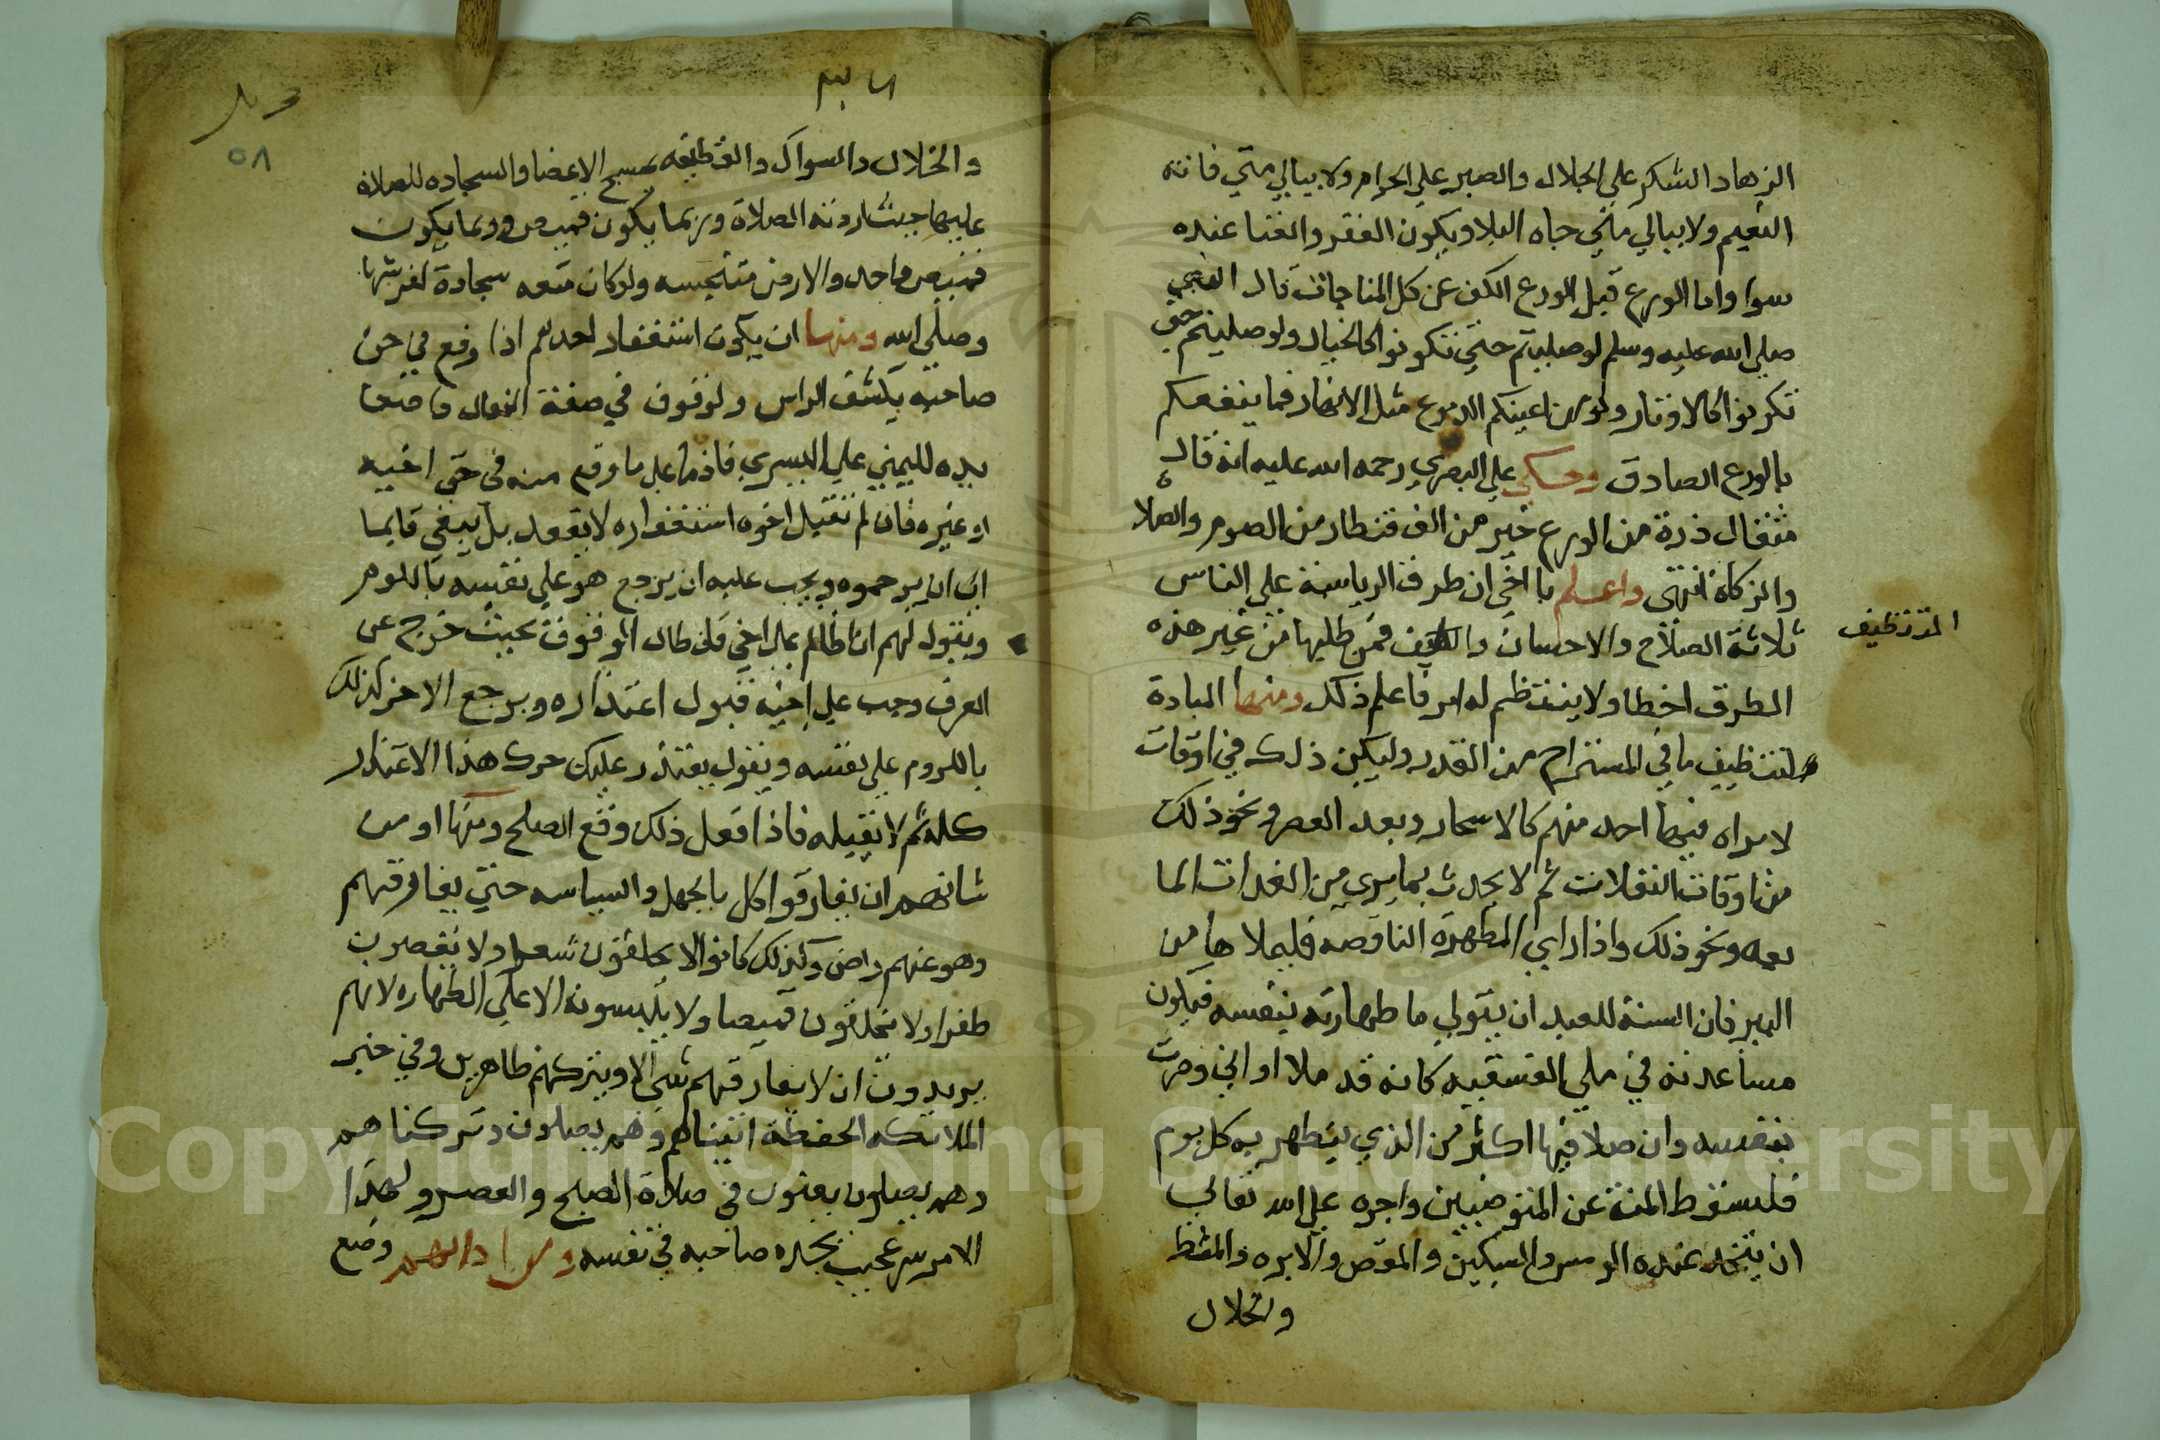 الزهاد الشكر علي الحلال والصبر علي الحرام ولا يبالي متي فاته
النعيم ولا يبالي متي جاه البلا ويكون الفقر والغنا عنده
سوا واما الورع قيل الورع الكف عن كل المناجات قال النبي
صلي الله عليه وسلم لو صليتم حتي تكونوا كالخيال ولو صليتم حتي
تكونوا كالاوتار ولو من اعينكم الدموع مثل الانهار فما ينفعكم
بالورع الصادق وحكي علي البصري رحمه الله عليه انه قال
مثقال ذرة من الورع خير من الف قنطار من الصوم والصلاة
والزكاة انتهي واعلم يا اخي ان طرف الرياسة علي الناس
ثلاثة الصلاح والاحسان فمن طلبها من غير هذه
الطرق اخطا ولا ينتظم له امر فاعلم ذلك ومنها المبادة
لتنظيف ما في المستراح من القذر وليكن ذلك في اوقات
المتنظيف
لا يراه فيها احد منهم كالاسحار وبعد العصر ونحو ذلك
من اوقات الغفلات ثم لا يحدث بما يري من الغدات الما
بعه ونحو ذلك واذا راي المطهرة الناقصه فليملاها من
البير فان السنة للعبد ان يتولي ما طهارته بنفسه فيكون
مساعدته في ملي الفسقيه كانه قد ملا اواني وضوء
بنفسه وان صلا فيها اكثر من الذي يتطهر به كل يوم
فلسقوط المنة عن المتوضيين واجره علي الله تعالي
ان يتخذ عنده الموس والسكين والمقص والابره والمشط
والخلال
والخلال والسواك والقطيفه يمسح الاعضا والسجاده للصلاة
عليها حيث اردته الصلاة وربما يكون قميص وربما يكون
قميص واحد والارض متنجسه ولو كان معه سجادة لفرشها
وصلي لله ومنها ان يكون استغفار احدهم اذا وقع في حق
صاحبه يكشف الراس ولوقوف في صفة النعال واضعا
يده لليمني علي اليسري فاذما علي ما وقع منه في حق اخيه
او غيره فان لم تقبل اخوه استغفاره لا يقعد بل يبقي قايما
الي ان يرحموه ويجب عليه ان يرجع هو علي نفسه باللوم
ويقول لهم انا ظالم علي اخي فان طال الوقوف بحيث خرج عن
العرف وجب علي اخيه قبول اعتذاره ويرجع الاخر كذلك
باللوم علي نفسه ويقول يعتذر عليك حرك هذا الاعتذار
كله ثم لا تقبله فاذا فعل ذلك وقع الصلح ومنها او من
شانهم ان يفارقوا كل بالجهل والسياسه حتي يفارقهم
وهو عنهم راض وكذلك كانوا لا يحلقون شعرا ولا يقصون
ظفرا ولا يخلقون قميصا ولا يلبسونه الا علي الطهاره لانهم
يريدون ان لا يفارقهم شي الا ويتركهم طاهرين وفي خبر
الملائكه الحفظة اتيناهم وهم يصلون وتركناهم
وهم يصلون يعنون في صلاة الصبح والعصر ولهذا
الامر سر عجيب يجده صاحبه في نفسه ومن ادابهم وضع
٥٨